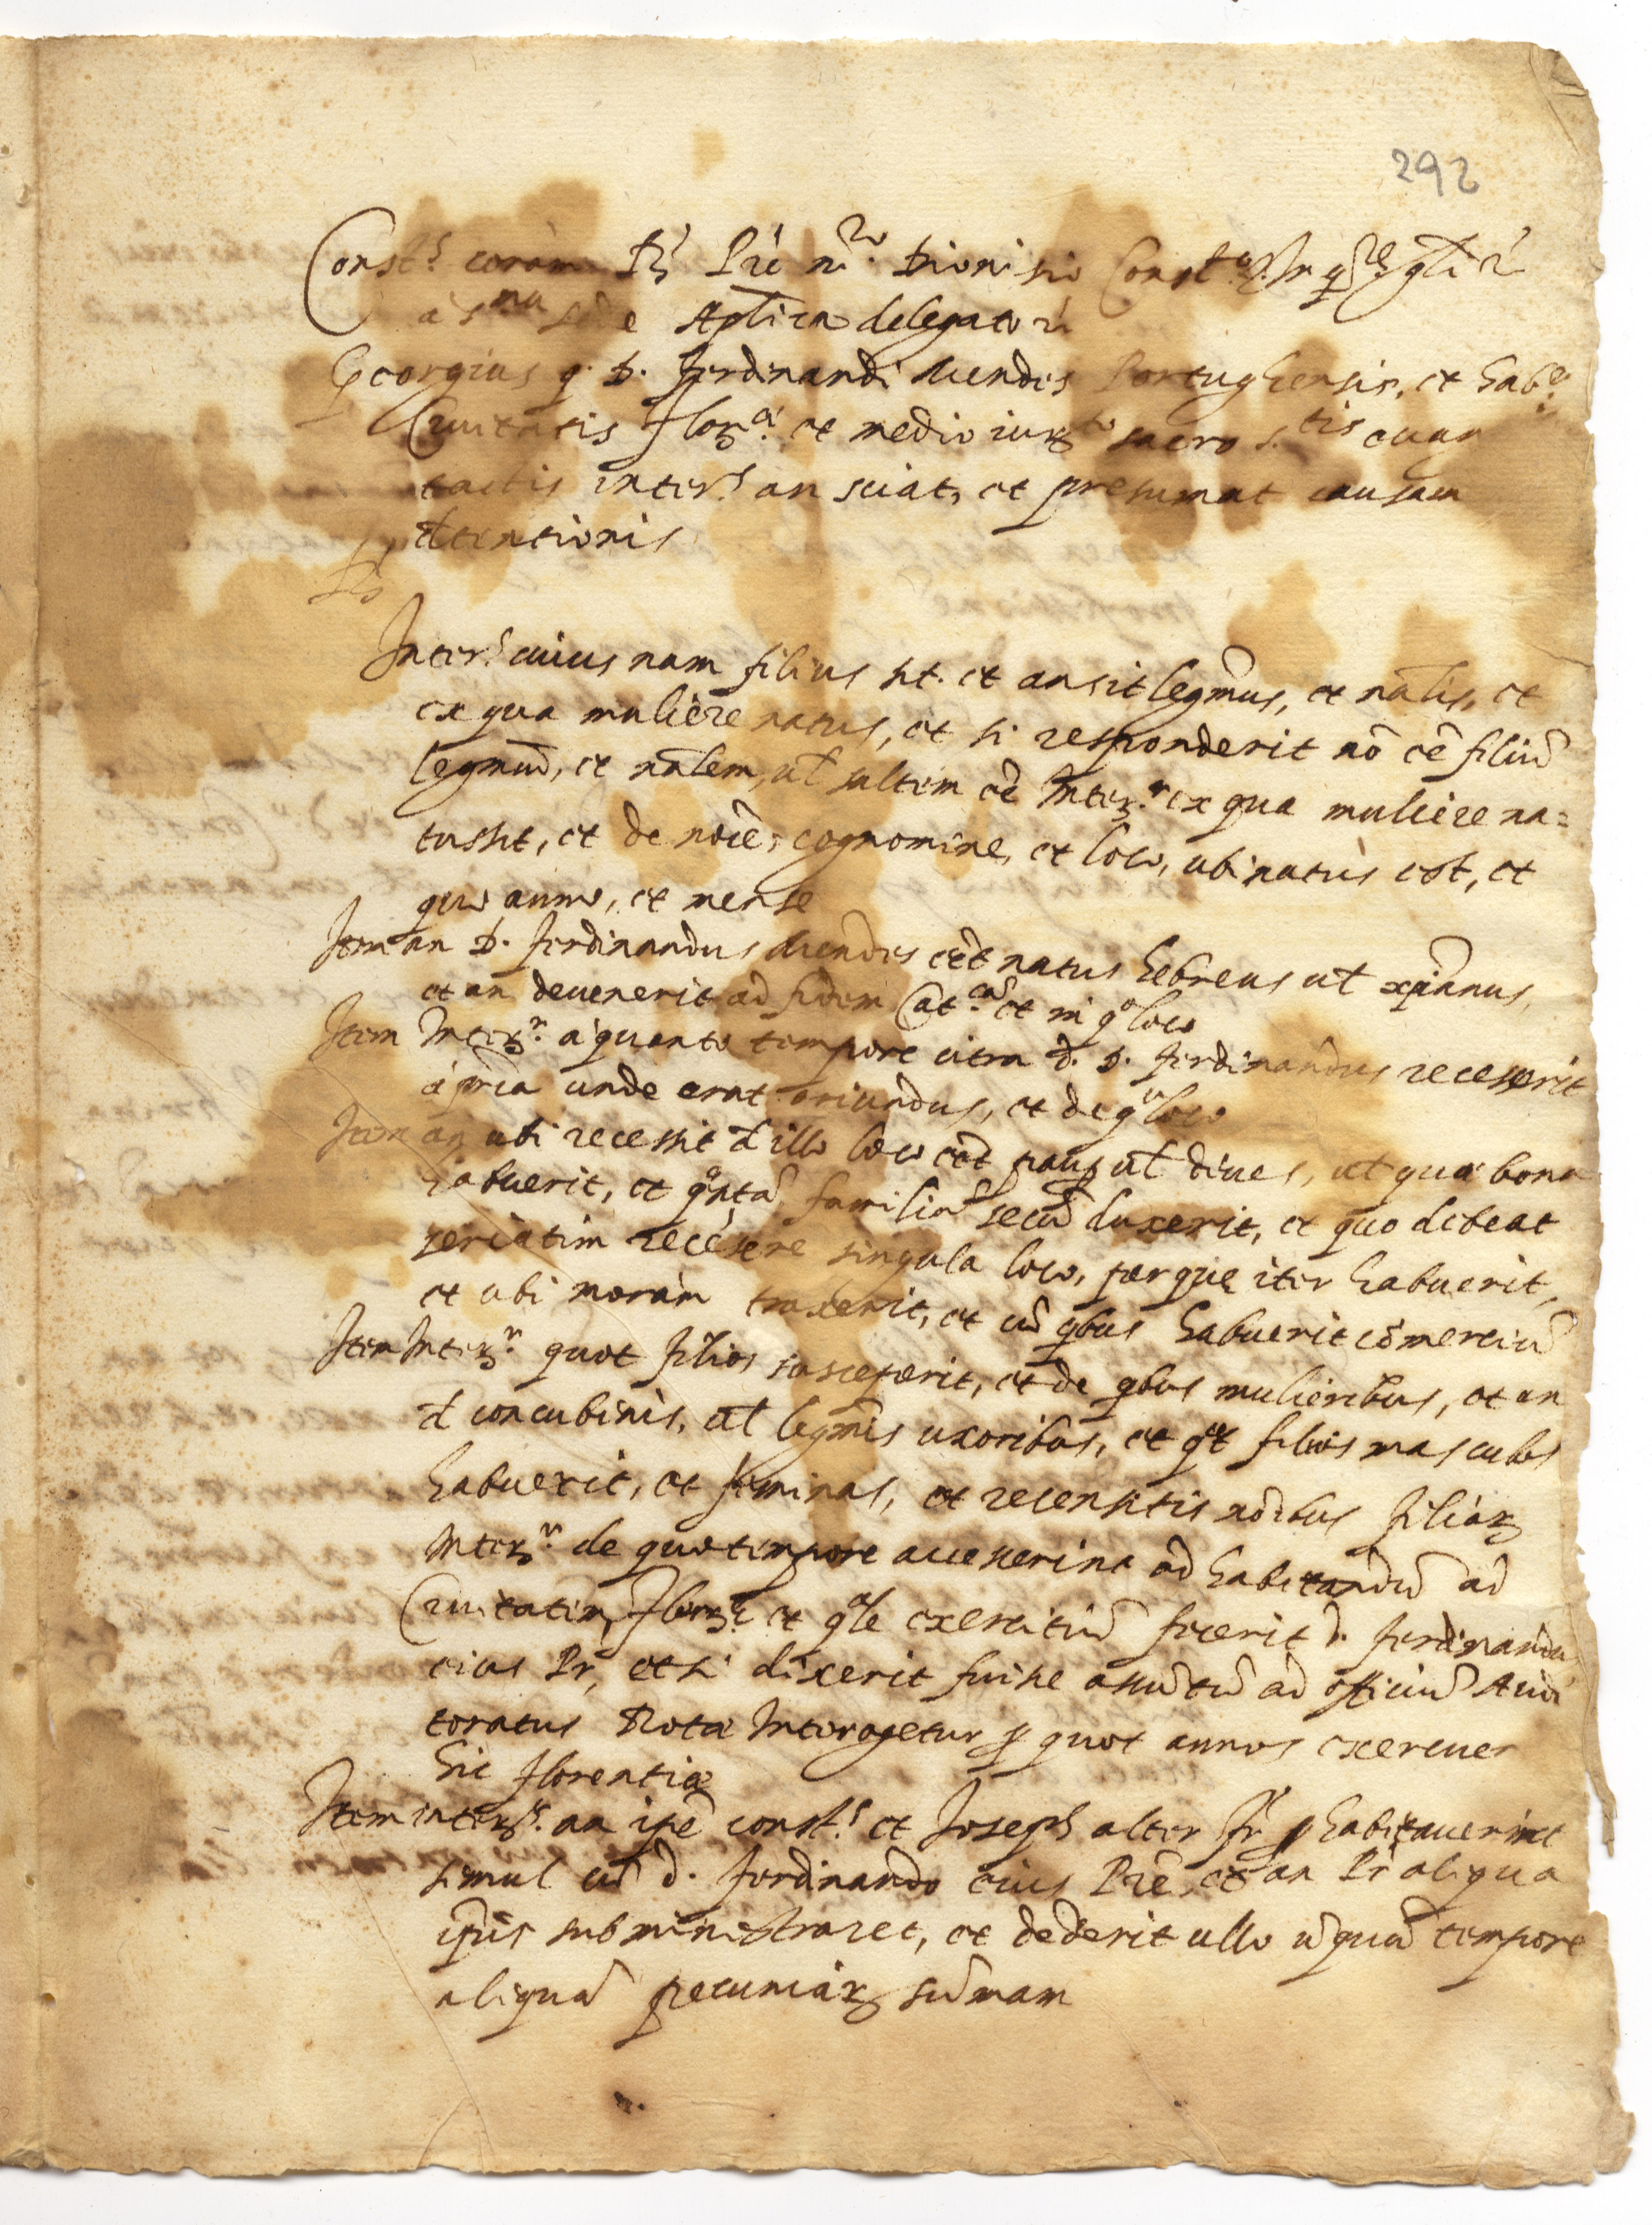 292
Const.s coram R. Pre mro. Dionisio
a s.ma sede Aplica delegato
Georgius q. D. Ferdinandi Mendes Portughensis, et hab.r
Civitatis Flor.æ et medio iur.to sacro s.tis evan
tactis inter.s an sciat, et presumat causam
detentionis
Rs
Inter.s cuius nam filius sit. et an sit legmus, et nalis, et
ex qua muliere natus, et si responderit nõ eê filiũ
legmũ, et nalem, ul saltem ... Interr.r ex qua muliere na=
tus sit, et de noiê, cognomine, et loco, ubi natus est, et
quo anno, et mense
Item an D. Ferdinandus Mendes eet natus hebreus ul xpianus,
et an devenerit ad fidem Cat.cã et in qo loco
Item Interr.r a quanto tempore citra d. D. Ferdinandus recesserit
a pria unde erat oriundus, et de quo loco
Item an ubi recessit d illo loco eet paup ul dives, ul quæ bona
habuerit, et qntã familiã secũ duxerit, et quo debeat
seriatim recẽsere singula loco, per que iter habuerit,
et ubi moram traxerit, et cũ qbus habuerit cõmerciũ
Item Interr.r quot filios susceperit, et de qbus mulieribus, et an
d concubinis, ul legmis uxoribus, et qt filios masculos
habuerit, et feminas, et recensitis noibus filiar
Interr.r de quo tempore accesserint ad habitandũ ad
Civitatem Flor.æ et qle exercitiũ fecerit D. Ferdinandus
eius Pr, et si dixerit fuisse assũtũ ad officiũ Audi
toratus Rotæ Interogetur p quot annos exercuer
hic Florentiæ
Item interr.r an ipe const.s et Joseph alter fr habitaverint
simul cũ D. Ferdinando eius Pre, et an Pr aliqua
ipis subministraret, et dederit ullo ũquã tempore
aliquã pecuniar sũmam